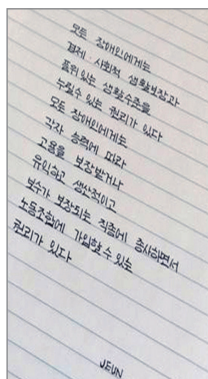 모든 장애인에게는
경제 사회적 생활보장과
품위있는 생활수준을
누릴수 있는 권리가 있다
모든 장애인에게는
각자 능력에 따라
고용을 보장받거나
유익하고 생산적이고
보수가 보장되는 직종에 종사하면서
노동조합에 가입할 수 있는
권리가 있다
JEUN